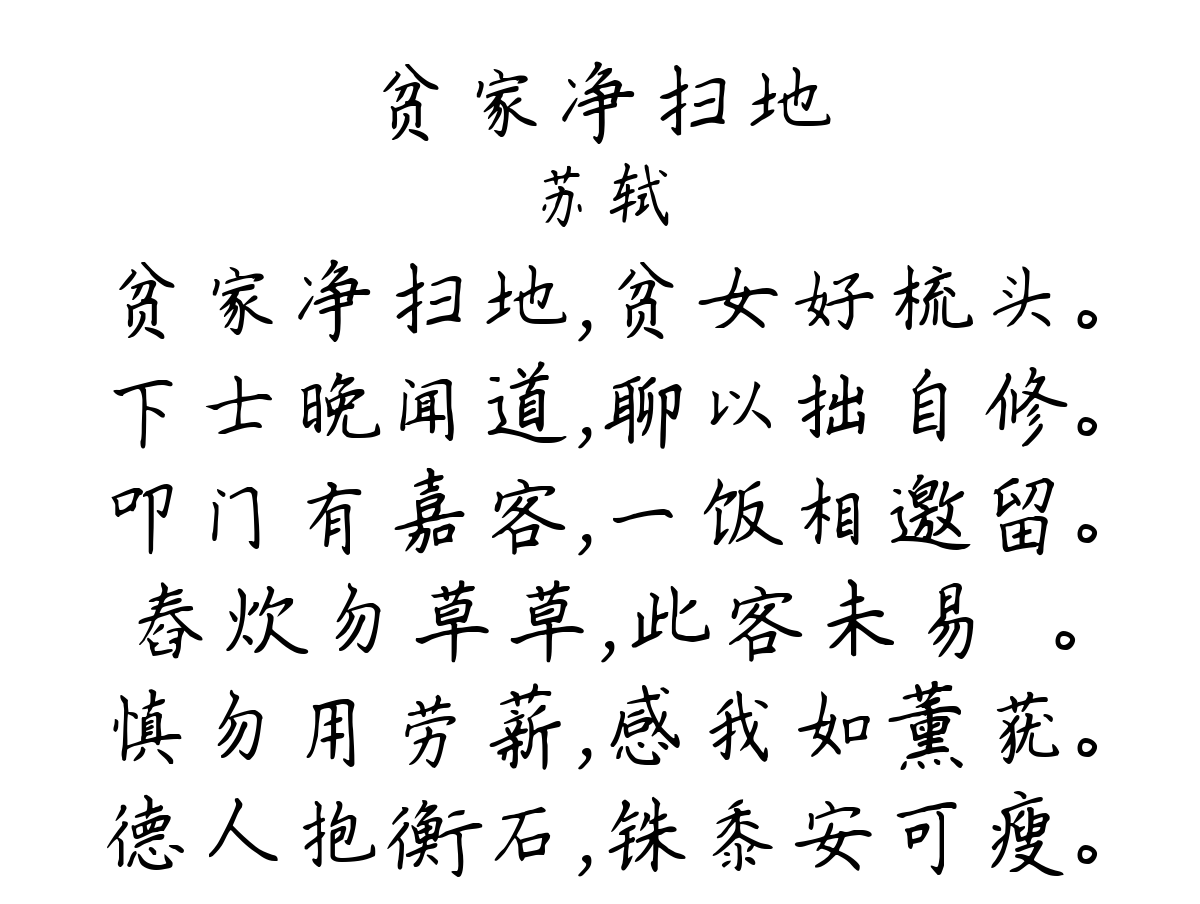 贫家净扫地
苏轼
贫家净扫地,贫女好梳头。
下士晚闻道,聊以拙自修。
叩门有嘉客,一饭相邀留。
舂炊勿草草,此客未易 。
慎勿用劳薪,感我如薰莸。
德人抱衡石,铢黍安可瘦。